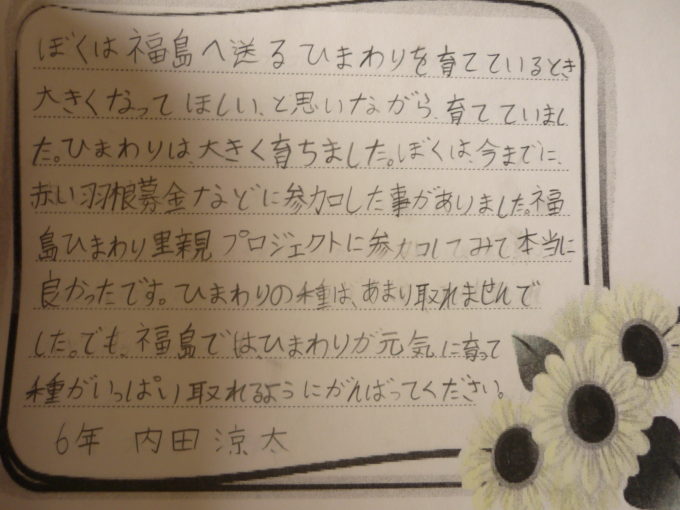 ぼくは福島へ送るひまわりを育てているとき
大きくなってほしい、と思いながら、育てていまし
た。ひまわりは、大きく育ちました。ぼくは、今までに、
赤い羽根募金などに参加した事がありました。福
島ひまわり里親プロジェクトに参加してみて本当に
良かったです。ひまわりの種は、あまり取れませんで
した。でも、福島では、ひまわりが元気に育って
種がいっぱい取れるようにがんばってください。
6年 内田涼太